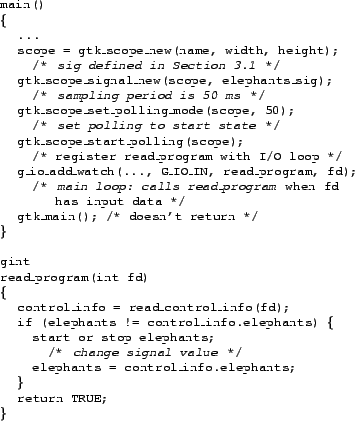 main()
{
  ...
  scope = gtk_scope_new(name, width, height);
    /* sig defined in Section 3.1 */
  gtk_scope_signal_new(scope, elephants_sig);
    /* sampling period is 50 ms */
  gtk_scope_set_polling_mode(scope, 50);
    /* set polling to start state */
  gtk_scope_start_polling(scope);
    /* register read_program with I/O loop */
  g_io_add_watch(..., G_IO_IN, read_program, fd);
    /* main loop: calls read_program when fd
       has input data */
  gtk_main(); /* doesn't return */
}

gint
read_program(int fd)
{
  control_info = read_control_info(fd);
  if (elephants != control_info.elephants) {
    start or stop elephants;
      /* change signal value */
    elephants = control_info.elephants;
  }
  return TRUE;
}